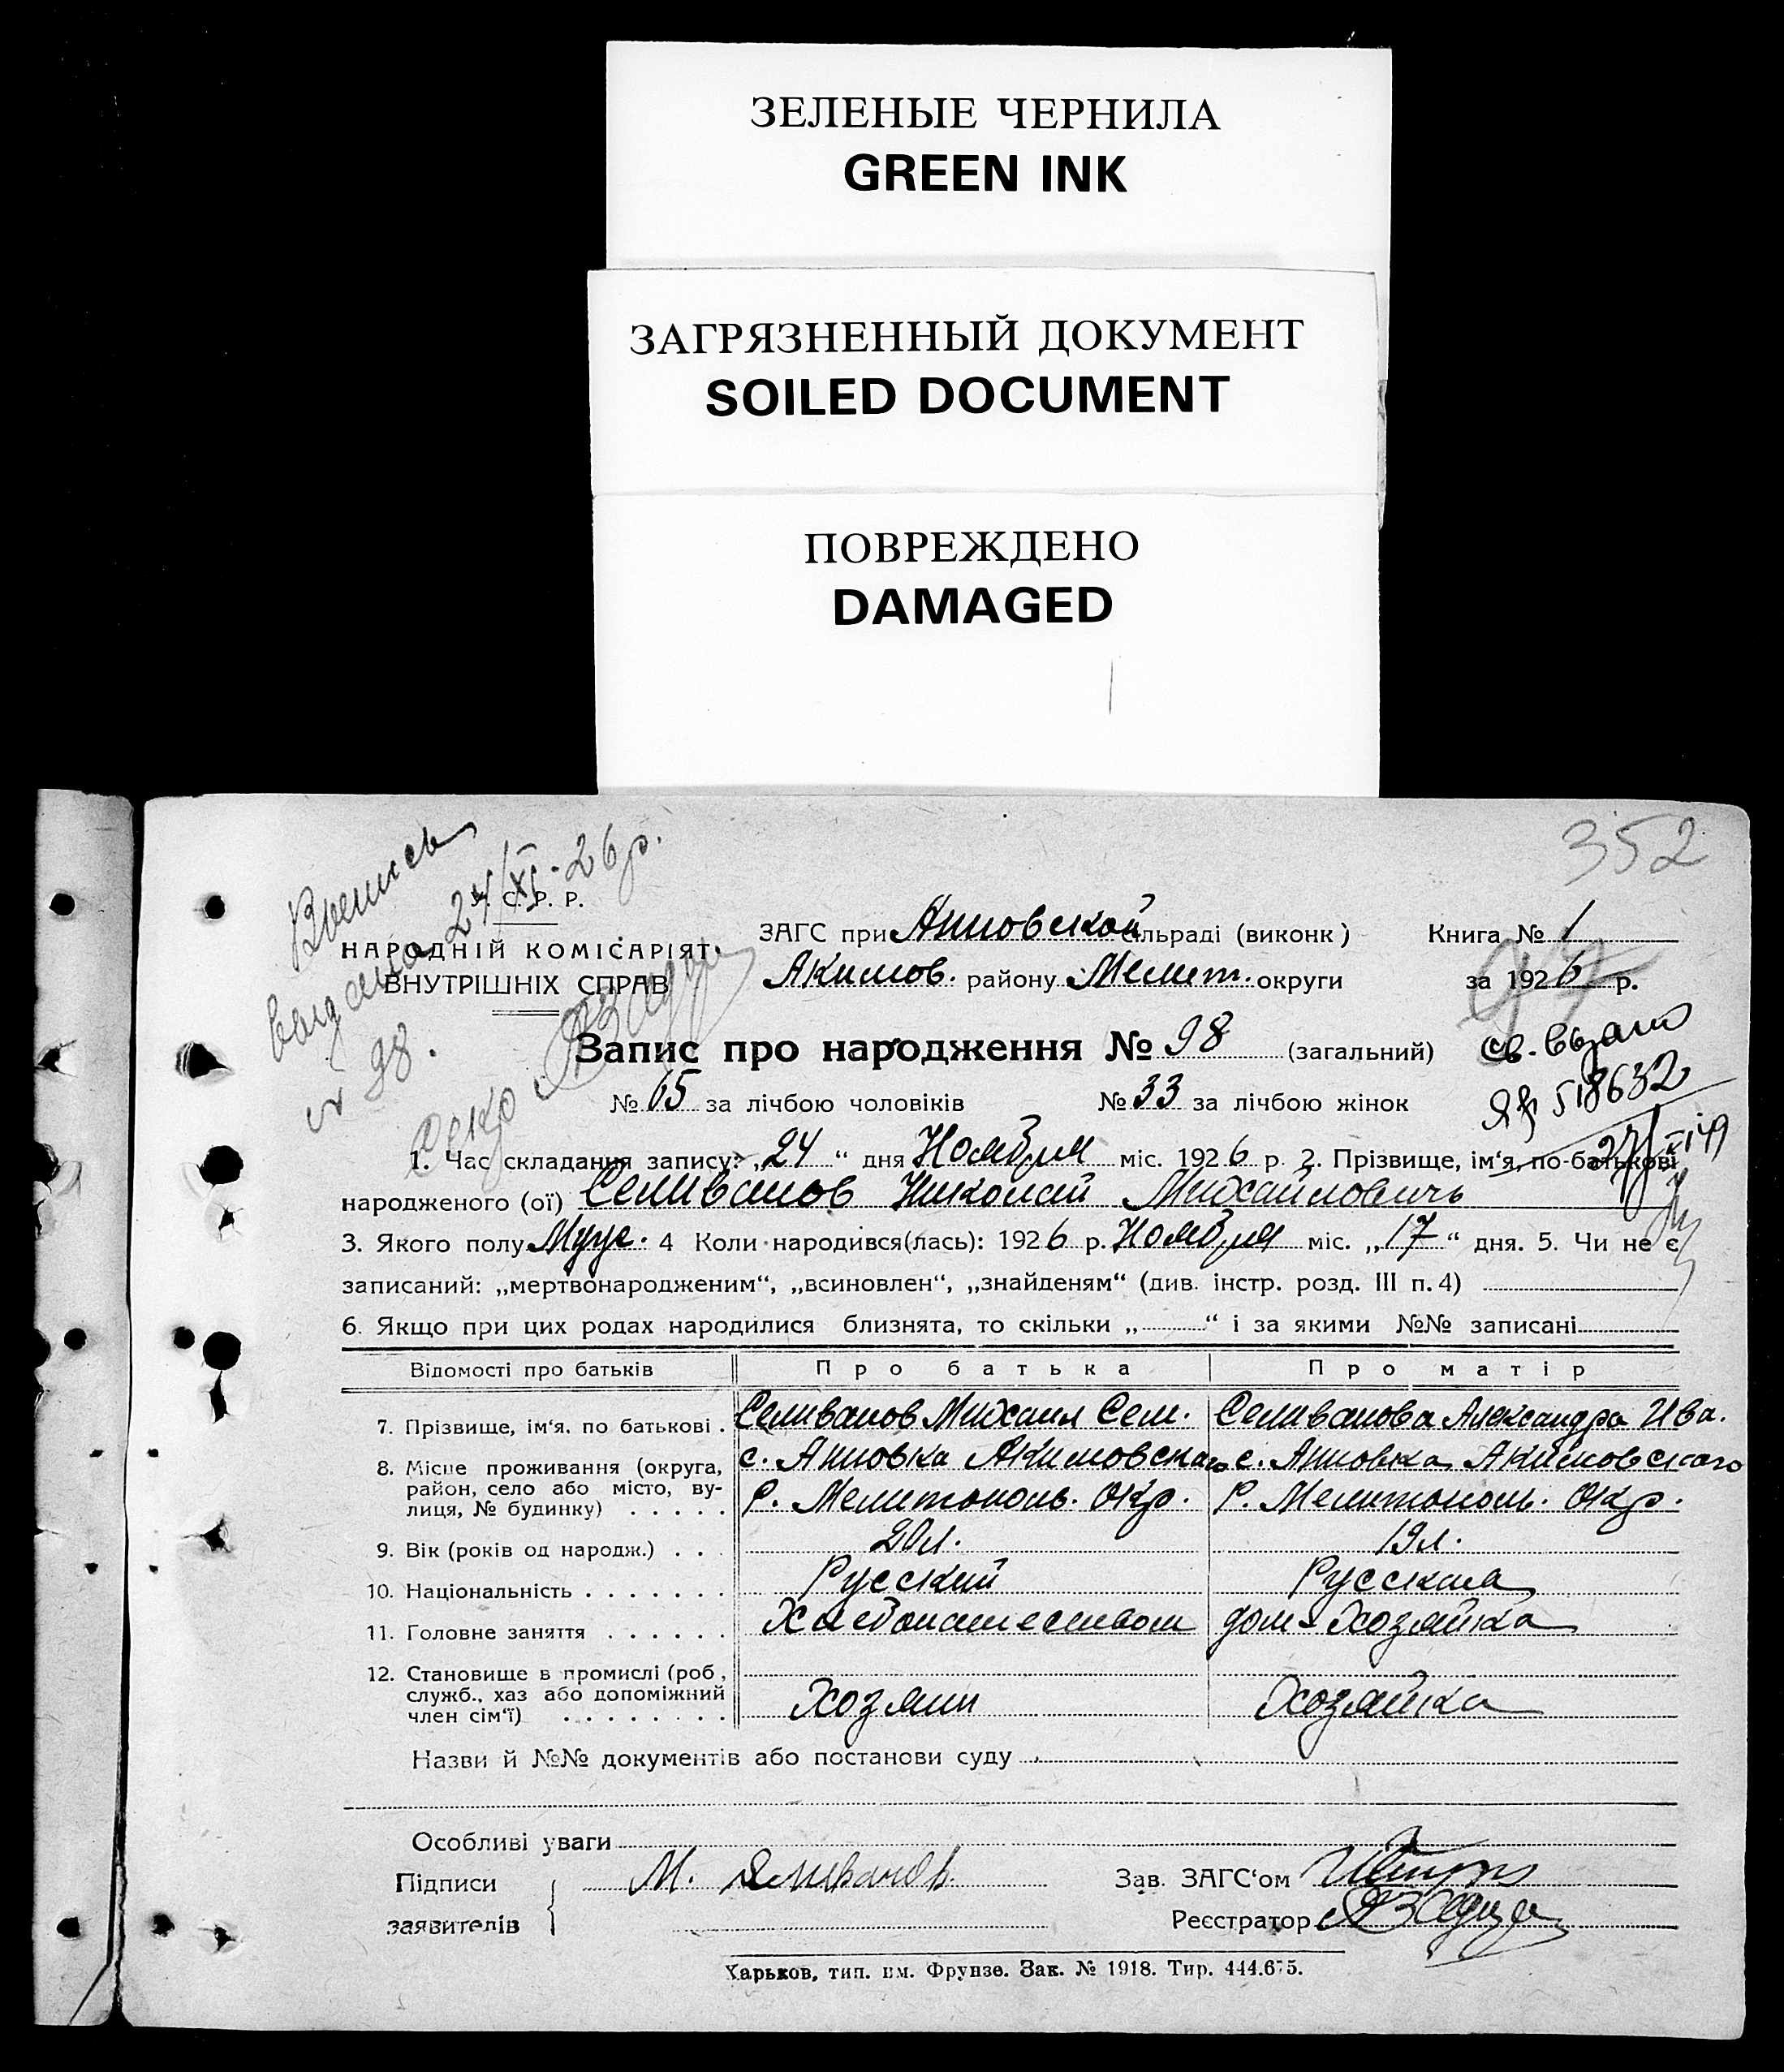 ЗЕЛЕНЫЕ ЧЕРНИЛА
GREEN INK
ЗАГРЯЗНЕННЫЙ ДОКУМЕНТ
SOILED DOCUMENT
ПОВРЕЖДЕНО
DAMAGED
352
Выпись
выдана 24/XI-26р.
№ 98.
У. С. Р. Р.
НАРОДНІЙ КОМІСАРІЯТ
ВНУТРІШНІХ СПРАВ
ЗАГС при Анновской сільраді (виконк) Книга № 1
Акимов. району Мелит. округи за 1926 р.
97
Запис про народження № 98 (загальний)
св. выдано
№ 65 за лічбою чоловіків № 33 за лічбою жінок
518632
27/XI 49
1. Час складання запису: „24“ дня Ноября міс. 1926 р. 2. Прізвище, ім'я, по-батькові
народженого (ої) Селиванов Николай Михайловичь
3. Якого полу Муж. 4 Коли народився(лась): 1926 р. Ноября міс. „17“ дня. 5. Чи не є
записаний: „мертвонародженим“, „всиновлен“, „знайденям“ (див. інстр. розд. III п. 4)
6. Якщо при цих родах народилися близнята, то скільки „ “ і за якими №№ записані
Відомості про батьків Про батька Про матір
7. Прізвище, ім'я. по батькові . Селиванов Михаил Сем. Селиванова Александра Ива.
8. Місце проживання (округа, район, село або місто, вулиця, № будинку) с. Анновка Акимовскаго с. Анновка Акимовского
Р. Мелитополь. Окр. Р. Мелитополь. Окр.
9. Вік (років од народж.) 20 л. 19 л.
10. Національність Русский Русская
11. Головне заняття Хлебопашеством дом-Хозяйка
12. Становище в промислі (роб, служб., хаз або допоміжний член сім'ї) Хозяин Хозяйка
Назви й №№ документів або постанови суду
Особливі уваги
Підписи М. Селиванов Зав. ЗАГС'ом
заявителів Реєстратор
Харьков, тип. им. Фрунзе. Зак. № 1918. Тир. 444.675.